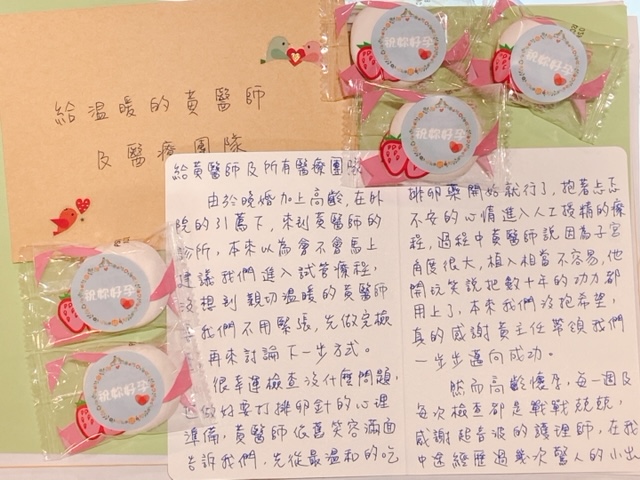 給溫暖的黃醫師
及醫療團隊
祝妳好孕
祝妳好孕
祝妳好孕
祝妳好孕
祝妳好孕
給黃醫師及所有醫療團隊
由於晚婚加上高齡,在外
院的引薦下,來到黃醫師的
診所,本來以為會不會馬上
建議我們進入試管療程,
沒想到親切溫暖的黃醫師
要我們不用緊張,先做完檢
再來討論下一步方式。
很幸運檢查沒什麼問題,
也做好要打排卵針的心理
準備,黃醫師依舊笑容滿面
告訴我們,先從最溫和的吃
排卵藥開始就行了,抱著忐忑
不安的心情進入人工授精的療
程,過程中黃醫師說因為子宮
角度很大,植入相當不容易,他
開玩笑說把數十年的功力都
用上了,本來我們沒抱希望,
真的感謝黃主任帶領我們
一步步邁向成功。
然而高齡懷孕,每一週及
每次檢查都是戰戰兢兢,
感謝超音波的護理師,在我
中途經歷過幾次驚人的小出